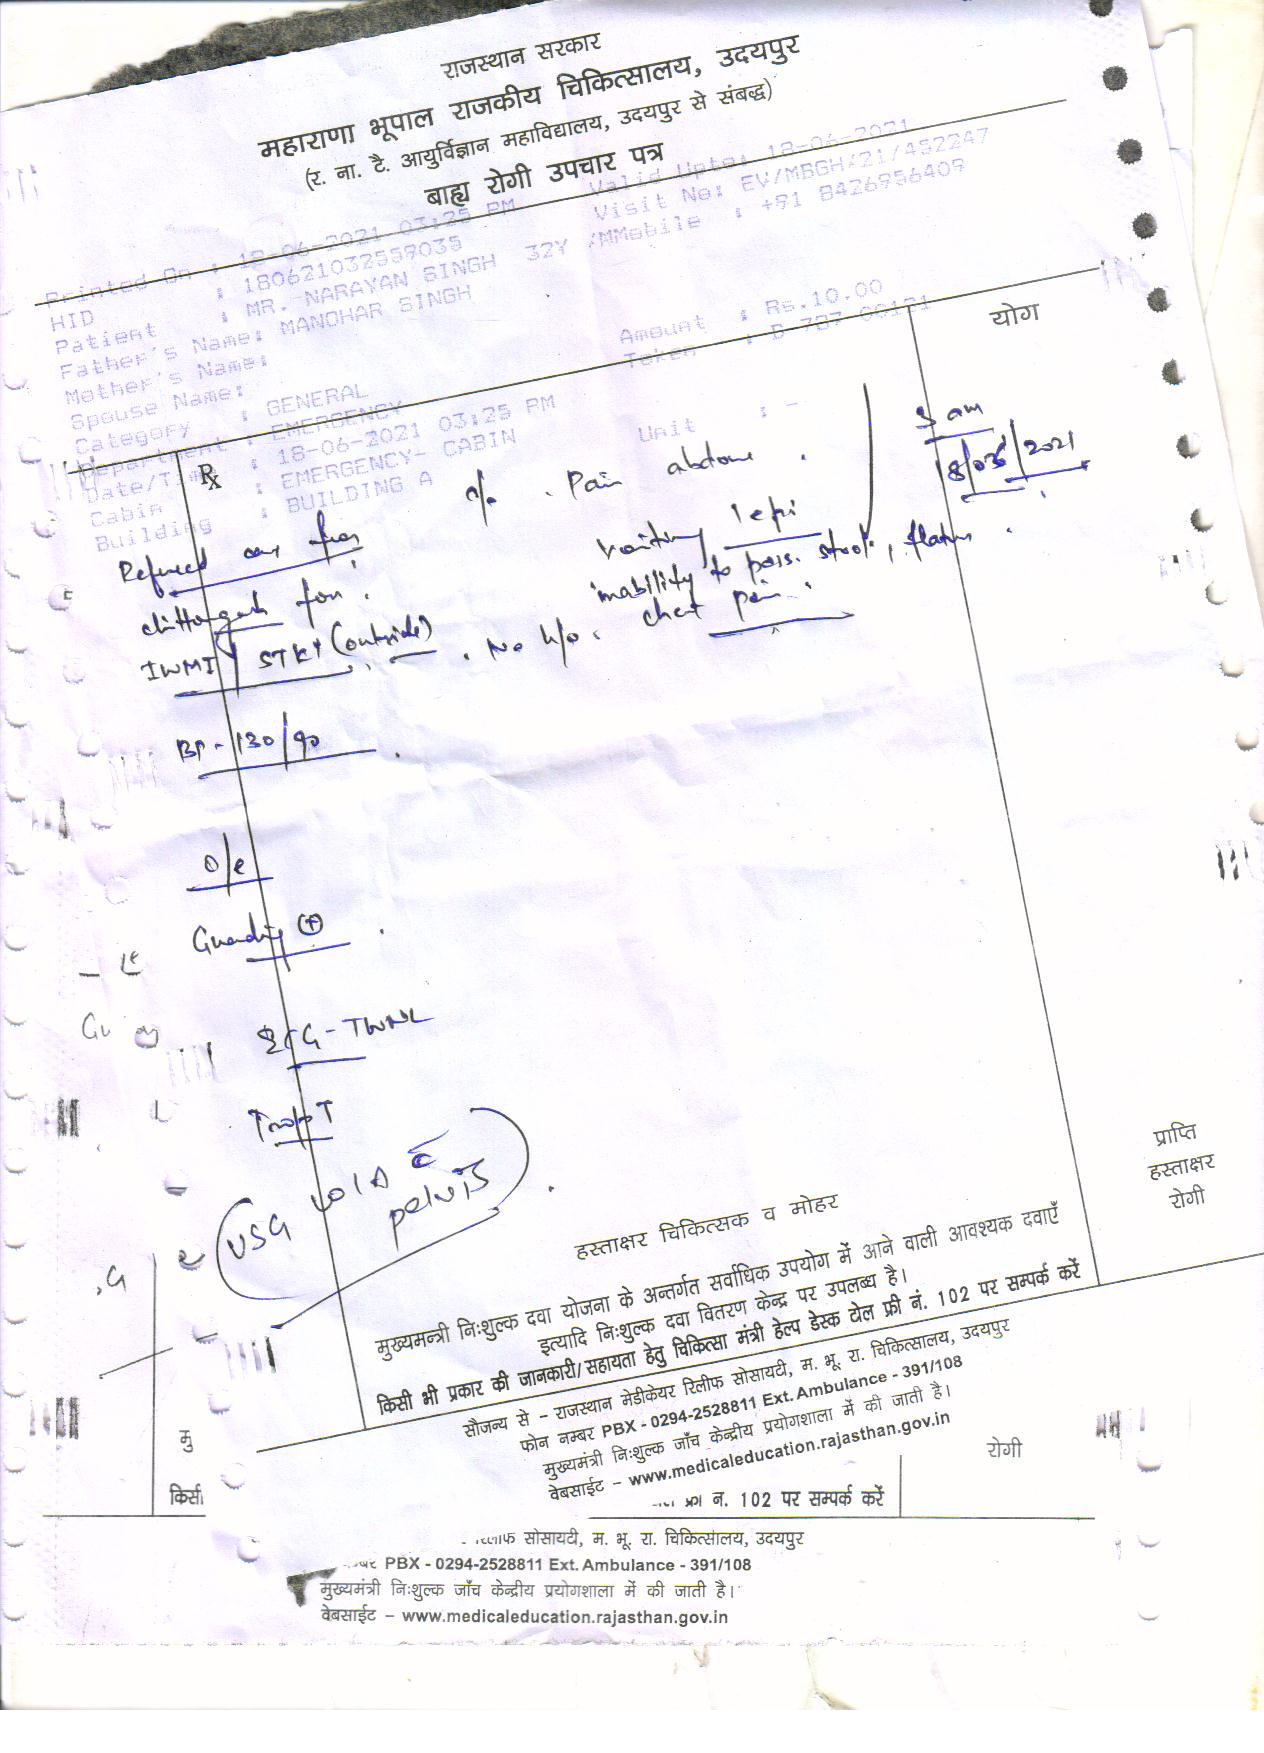 राजस्थान सरकार
महाराणा भूपाल राजकीय चिकित्सालय, उदयपुर
(र. ना. टै. आयुर्विज्ञान महाविद्यालय, उदयपुर से संबद्ध)
बाह्य रोगी उपचार पत्र
Printed On : 18-06-2021 03:25 PM Valid Upto: 18-06-2021
HID : 180621032559035 Visit No: EV/MBGH/21/452247
Patient : MR. NARAYAN SINGH 32Y /MMobile : +91 8426956409
Father's Name: MANOHAR SINGH
Mother's Name:
Spouse Name: Amount : Rs.10.00
Category : GENERAL Token : D-707-00131
Department : EMERGENCY
Date/Time : 18-06-2021 03:25 PM Unit : -
Cabin : EMERGENCY- CABIN
Building : BUILDING A
योग
Rx
c/o . Pain abdome .
3 am
18/06/2021
Vomiting 1 epi
inability to pass. stool, flatus .
Refered case from
chittorgarh for .
IWMI / STKY (outside) . No h/o . chest pain .
BP - 130/90 .
O/e
Guarding (+) .
ECG - TWNL
Trop T
USG W/A c̄
pelvis .
प्राप्ति
हस्ताक्षर
रोगी
हस्ताक्षर चिकित्सक व मोहर
मुख्यमन्त्री निःशुल्क दवा योजना के अन्तर्गत सर्वाधिक उपयोग में आने वाली आवश्यक दवाएँ
इत्यादि निःशुल्क दवा वितरण केन्द्र पर उपलब्ध है।
किसी भी प्रकार की जानकारी/सहायता हेतु चिकित्सा मंत्री हेल्प डेस्क टोल फ्री नं. 102 पर सम्पर्क करें
सौजन्य से – राजस्थान मेडीकेयर रिलीफ सोसायटी, म. भू. रा. चिकित्सालय, उदयपुर
फोन नम्बर PBX - 0294-2528811 Ext. Ambulance - 391/108
मुख्यमंत्री निःशुल्क जाँच केन्द्रीय प्रयोगशाला में की जाती है।
वेबसाईट – www.medicaleducation.rajasthan.gov.in
मु
रोगी
किसी
फ्री न. 102 पर सम्पर्क करें
रिलीफ सोसायटी, म. भू. रा. चिकित्सालय, उदयपुर
नम्बर PBX - 0294-2528811 Ext. Ambulance - 391/108
मुख्यमंत्री निःशुल्क जाँच केन्द्रीय प्रयोगशाला में की जाती है।
वेबसाईट – www.medicaleducation.rajasthan.gov.in